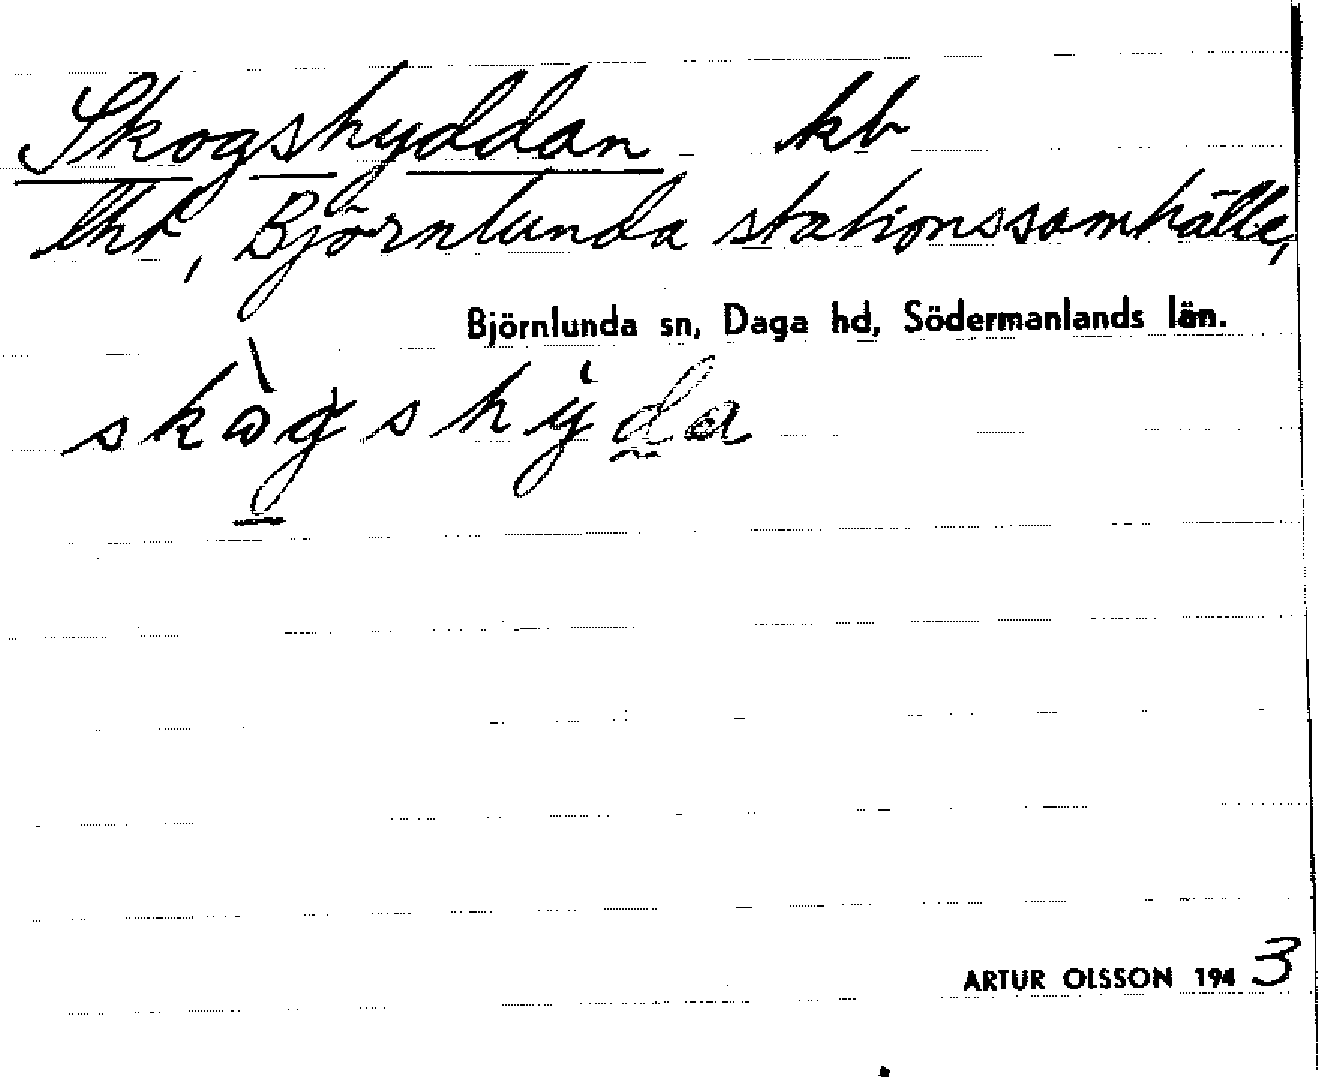 Skogshyddan kb
lht, Björnlunda stationssamhälle,
Björnlunda sn, Daga hd, Södermanlands län.
skògshýda
ARTUR OLSSON 1943